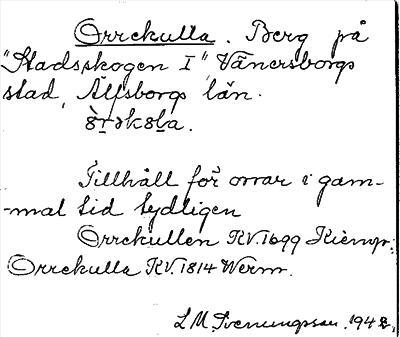 Orrekulla. Berg på
"Stadsskogen I", Vänersborgs
stad, Älfsborgs län.
Tillhåll för orrar i gam-
-mal tid tydligen
Orrekullen KV.1699 Kiemp.
Orrekulla KV.1814 Werm.
L M Svenungsson. 1948.